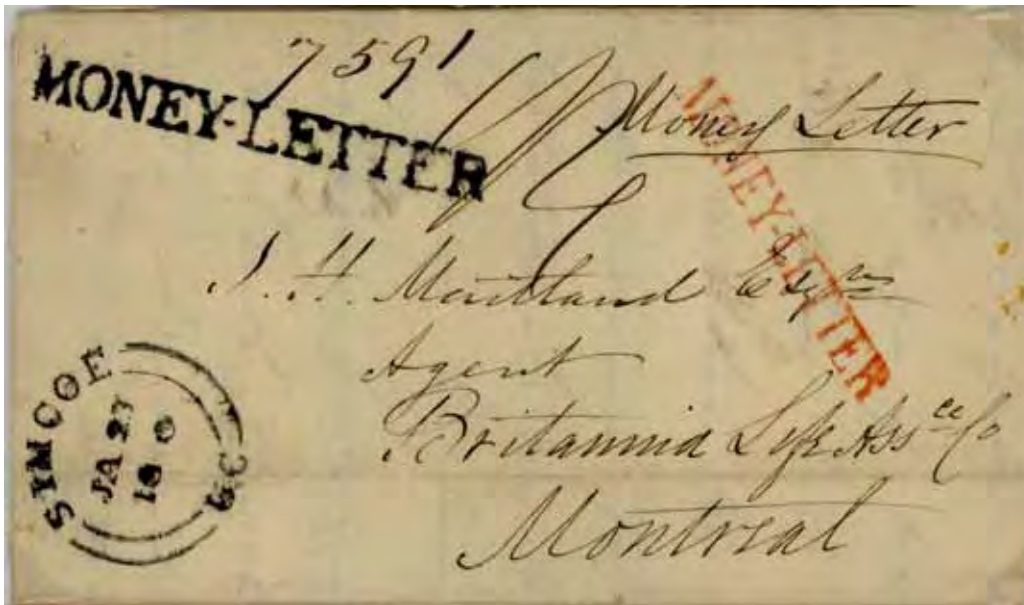 7591
MONEY-LETTER
Money Letter
MONEY-LETTER
J. H. Maitland Esqre
Agent
Britannia Life Assce Co
Montreal
SYMCOE
JA 27